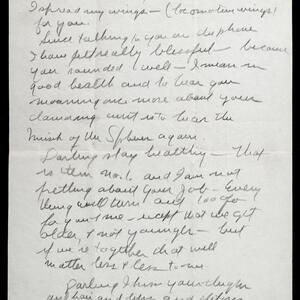 I spread my wings – (locomotive wings)
for you.
Since talking to you on the phone
I have felt really blissful – because
you sounded well – I mean in
good health and to hear you
once more about your
to hear the
music of the again.
Darling stay healthy – that
is item no. 1 and I am not
about your job – Every
thing will turn out too
for you & me – except that we get
older, & not younger – but
if we're together that will
matter less & less to me
Darling I kiss your
and hair and